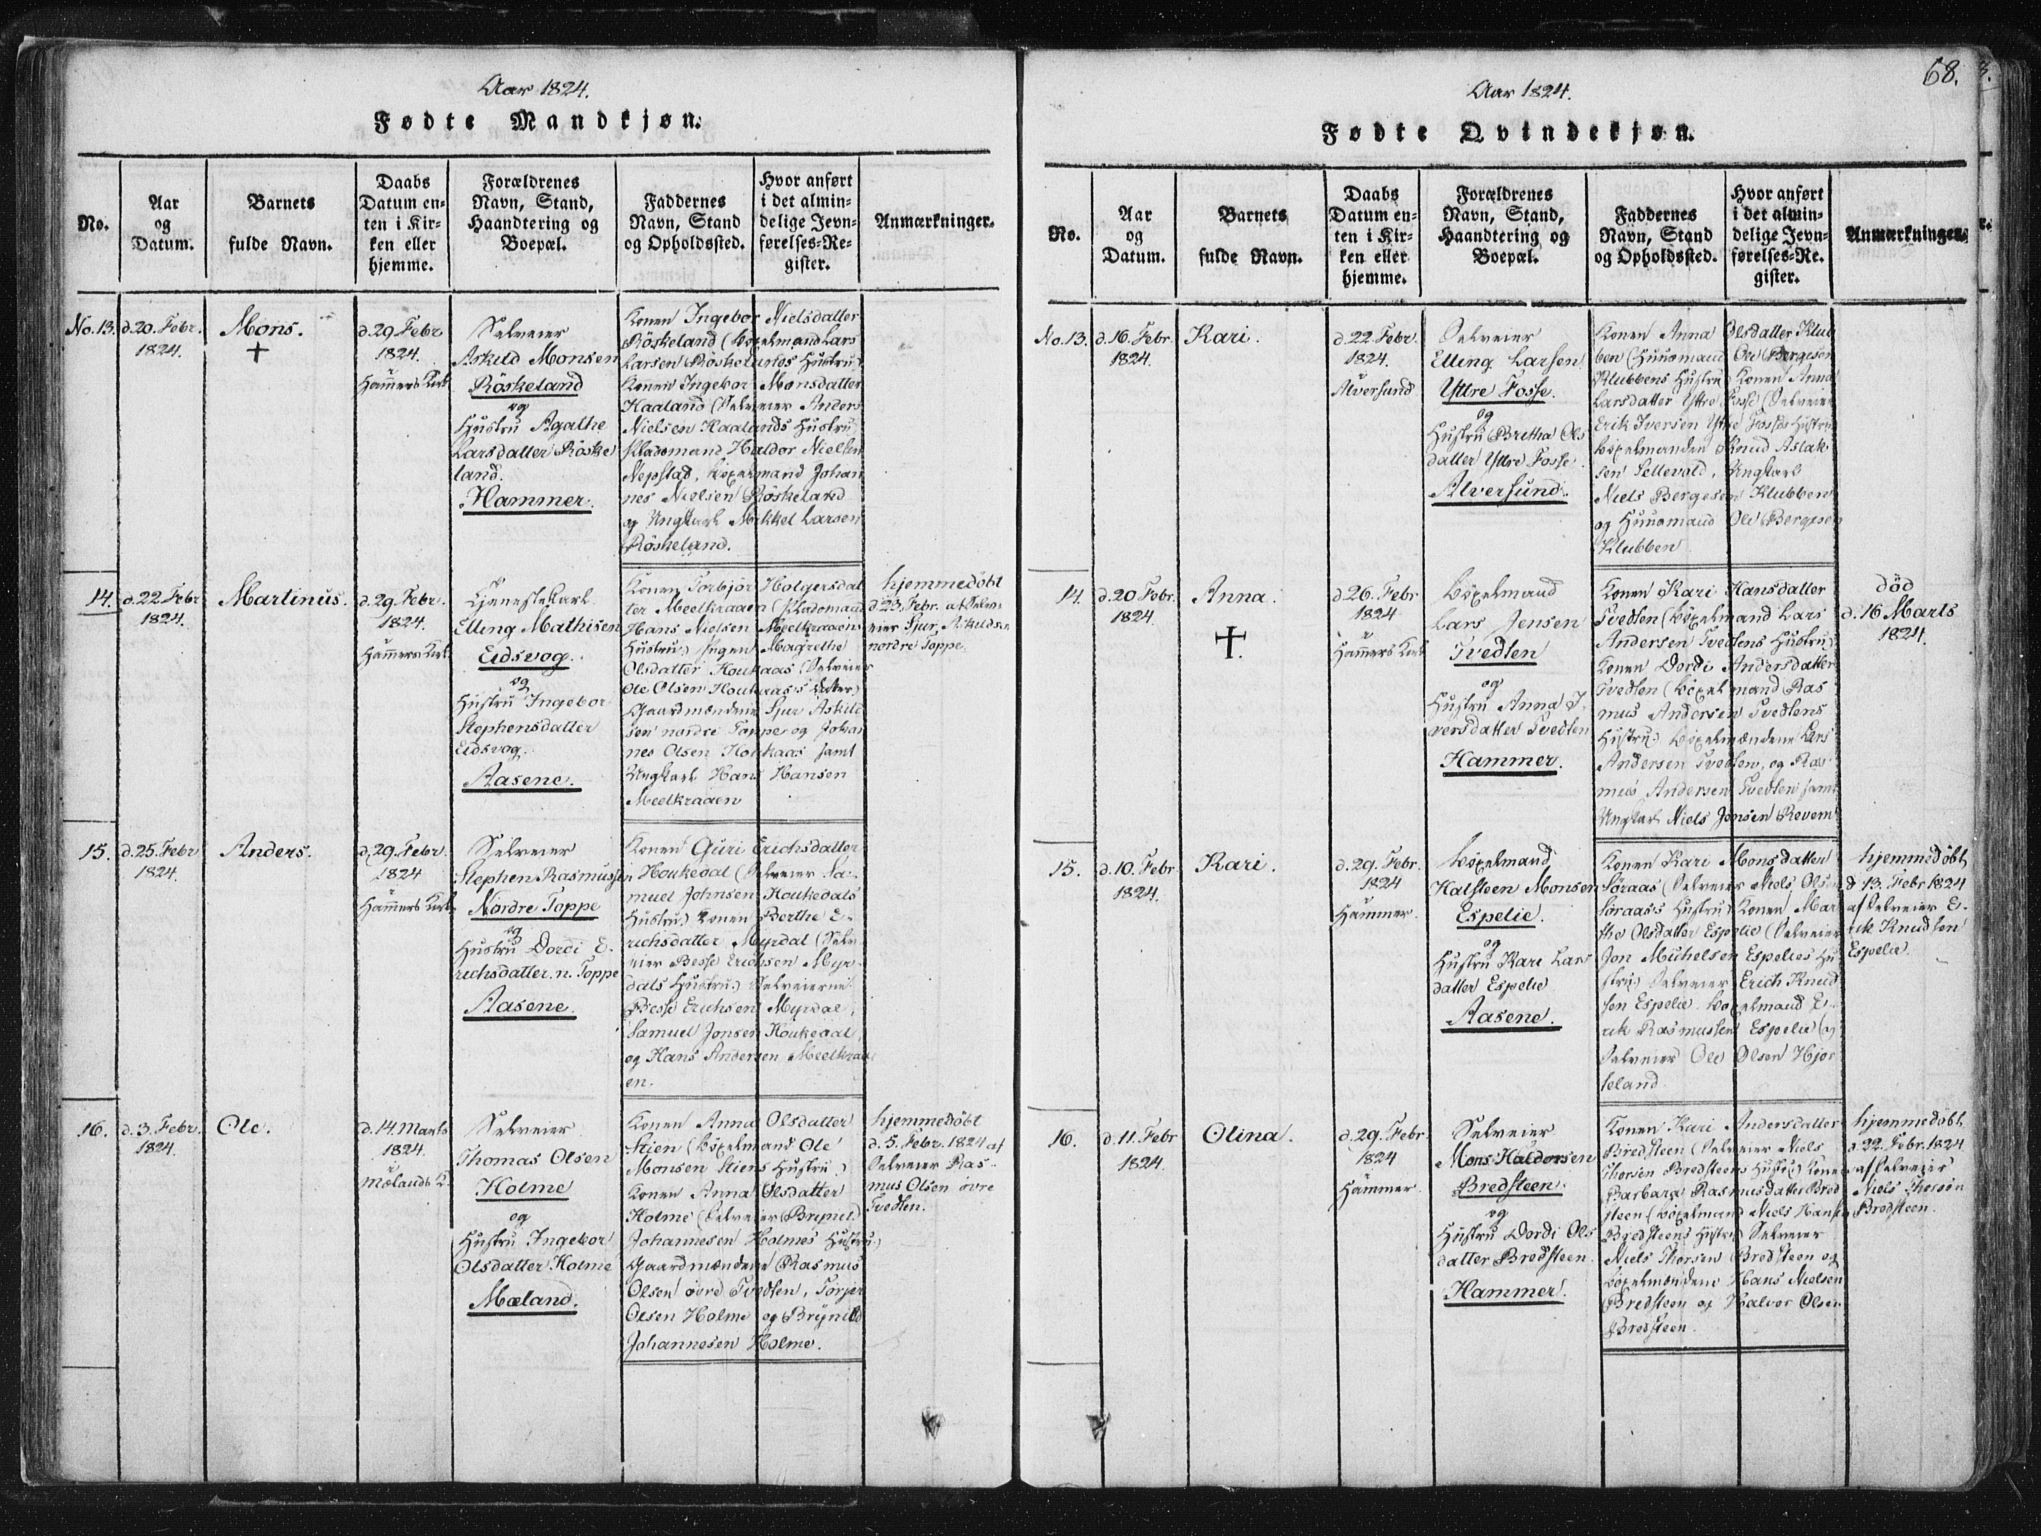 Aar 1824.
Fødte Mandkjøn.
No.
Aar
og
Datum.
Barnets
fulde Navn.
Daabs
Datum en-
ten i Kir-
ken eller
hjemme.
Forældrenes
Navn, Stand,
Haandtering og
Boepæl.
Faddernes
Navn, Stand
og Opholdssted.
Hvor anført
i det almin-
delige Jevn-
førelses-Re-
gister.
Anmærkninger.
No. 13.
d. 20. Febr.
1824.
Mons.
d. 29. Febr
1824.
Hammers Kirk
Selveier
Askild Monsen
Röskeland
og
Hustru Agathe
Larsdatter Röske
land.
Hammer.
Konen Ingebor Nielsdatter
Röskeland (Böxelmand Lars
Larsen Röskelands Hustru)
Konen Ingebor Monsdatter
Haaland (Selveier Anders
Nielsen Haalands Hustru
Pladsmand Haldor Nielsen
Nepstad, Böxelmand Johan
nes Nielsen Röskeland
og Ungkarl Mikkel Larsen
Röskeland.
14.
d. 22 Febr
1824.
Martinus.
d. 29. Febr.
1824.
Hammers Kirk
Tjenestekarl
Elling Mathisen
Eidsvog.
og
Hustru Ingebor
Stephensdatter
Eidsvog.
Aasene.
Konen Torbjör Holgersdat
ter Meelkraaen (Pladsmand
Hans Nielsen Meelkraaens
Hustru) Pigen Magrethe
Olsdatter Houkaas (Selveier
Ole Olsen Houkaas's Datter)
Gaardmændene Sjur Askild
sen nordre Toppe og Johan
nes Olsen Houkaas samt
Ungkarl Hans Hansen
Meelkraaen
hjemmedöbt
d. 23. Febr. af Selv-
eier Sjur Askildsen
nordre Toppe.
15.
d. 25. Febr
1824.
Anders.
d. 29. Febr.
1824
Hammers Kirk
Selveier
Stephen Rasmussen
Nordre Toppe
og
Hustru Dordi E-
richsdatter n. Toppe
Aasene.
Konen Guri Erichsdatter
Houkedal (Selveier Sa-
muel Johnsen Houkedals
Hustru) Konen Berthe E-
richsdatter Myrdal (Selv
eier Besse Erichsen Myr-
dals Hustru) Selveierne
Besse Erichsen Myrdal,
Samuel Jonsen Houkedal,
og Hans Andersen Meelkraa
en.
16.
d. 3. Febr.
1824.
Ole.
d. 14. Marts
1824.
Mælands K.
Selveier
Thomas Olsen
Holme
og
Hustru Ingebor
Olsdatter Holme
Mæland.
Konen Anna Olsdatter
Stien (Böxelmand Ole
Monsen Stiens Hustru)
Konen Anna Olsdatter
Holme (Selveier Brynel
Johannesen Holmes Hustru)
Gaardmændene Rasmus
Olsen övre Tvedten, Torjer
Olsen Holme og Brynild
Johannesen Holme.
hjemmedöbt
d. 5. Febr. 1824 af
Selveier Ras-
mus Olsen övre
Tvedten.
Aar 1824.
68.
Fødte Qvindekjøn.
No.
Aar
og
Datum.
Barnets
fulde Navn.
Daabs
Datum en-
ten i Kir-
ken eller
hjemme.
Forældrenes
Navn, Stand,
Haandtering og
Boepæl.
Faddernes
Navn, Stand
og Opholdssted.
Hvor anført
i det almin-
delige Jevn-
førelses-Re-
gister.
Anmærkninger.
No. 13.
d. 16. Febr
1824.
Kari.
d. 22 Febr.
1824.
i
Alversund
Selveier
Elling Larsen
Yttre Fosse.
og
Hustru Bretha Ols
datter Yttre Fosse.
Alversund.
Konen Anna Olsdatter Klub
ben (Huusmand Ole Bergesen
Klubbens Hustru) Konen Anna
Larsdatter Yttre Fosse (Selveier
Erik Iversen Yttre Fosses Hustru
Böxelmanden Knud Aslak
sen Settevold, Ungkarl
Niels Bergesen Klubben
og Huusmand Ole Bergesen
Klubben
14.
d. 20 Febr.
1824.
Anna.
d. 26. Febr
1824
Hammers Kirk
Böxelmand
Lars Jensen
Tvedten
og
Hustru Anna I-
versdatter Tvedten
Hammer.
Konen Kari Hansdatter
Tvedten (Böxelmand Lars
Andersen Tvedtens Hustru)
Konen Dordi Andersdatter
Tvedten (Böxelmand Ras
mus Andersen Tvedtens
Hustru) Böxelmændene Lars
Andersen Tvedten, og Ras
mus Andersen Tvedten samt
Ungkarl Niels Jensen Revem
död
d. 16 Marts
1824.
15.
d. 10. Febr
1824.
Kari.
d. 29. Febr.
1824
Hammer.
Böxelmand
Halsteen Monsen
Espelie.
og
Hustru Kari Lars
datter Espelie
Aasene.
Konen Kari Monsdatter
Söraas (Selveier Niels Olsen
Söraas's Hustru) Konen Mar
the Olsdatter Espelie (Selveier
Jon Michelsen Espelies Hu
stru) Selveier Erich Knud
sen Espelie. Böxelmand E-
rik Rasmussen Espelie og
Selveier Ole Olsen Hjor
teland
hjemmedöbt
d 13. Febr 1824
af Selveier E-
rik Knudsen
Espelie.
16.
d. 11. Febr
1824.
Olina.
d. 29. Febr.
1824
Hammer.
Selveier
Mons Haldorsen
Bredsteen.
og
Hustru Dordi Ols
datter Bredsteen.
Hammer.
Konen Kari Andersdatter
Bredsteen (Selveier Niels
Thorsen Bredsteens Hustru) Konen
Barbara Rasmusdatter Bred
steen (Böxelmand Niels Hansen
Bredsteens Hustru) Selveier
Niels Thorsen Bredsteen og
Böxelmændene Hans Nielsen
Bredsteen og Halvor Olsen
Bredsteen.
hjemmedöbt
d. 22. Febr. 1824
af Selveier
Niels Thorsen
Bredsteen.